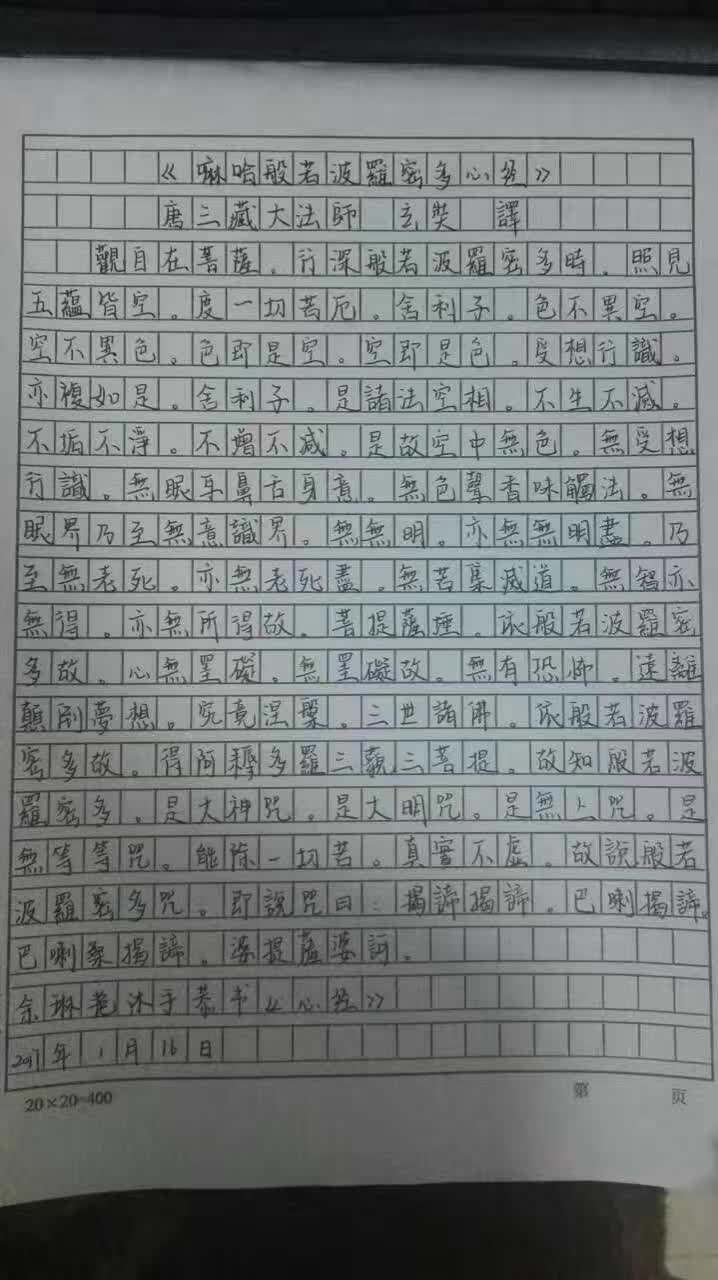 《嘛哈般若波羅密多心经》
唐三藏大法師 玄奘 譯
觀自在菩薩。行深般若波羅密多時。照見
五蘊皆空。度一切苦厄。舍利子。色不異空。
空不異色。色即是空。空即是色。受想行識。
亦複如是。舍利子。是諸法空相。不生不滅。
不垢不淨。不增不减。是故空中無色。無受想
行識。無眼耳鼻舌身意。無色聲香味觸法。無
眼界乃至無意識界。無無明。亦無無明盡。乃
至無老死。亦無老死盡。無苦集滅道。無智亦
無得。亦無所得故。菩提薩埵。依般若波羅密
多故。心無罣礙。無罣礙故。無有恐怖。遠離
顛倒夢想。究竟涅槃。三世諸佛。依般若波羅
密多故。得阿耨多羅三藐三菩提。故知般若波
羅密多。是大神咒。是大明咒。是無上咒。是
無等等咒。能除一切苦。真實不虛。故說般若
波羅密多咒。即說咒曰：揭諦揭諦。巴喇揭諦。
巴喇桑揭諦。婆提薩婆訶。
余琳艳沐手恭书《心经》
年1月16日
20×20=400 第 页